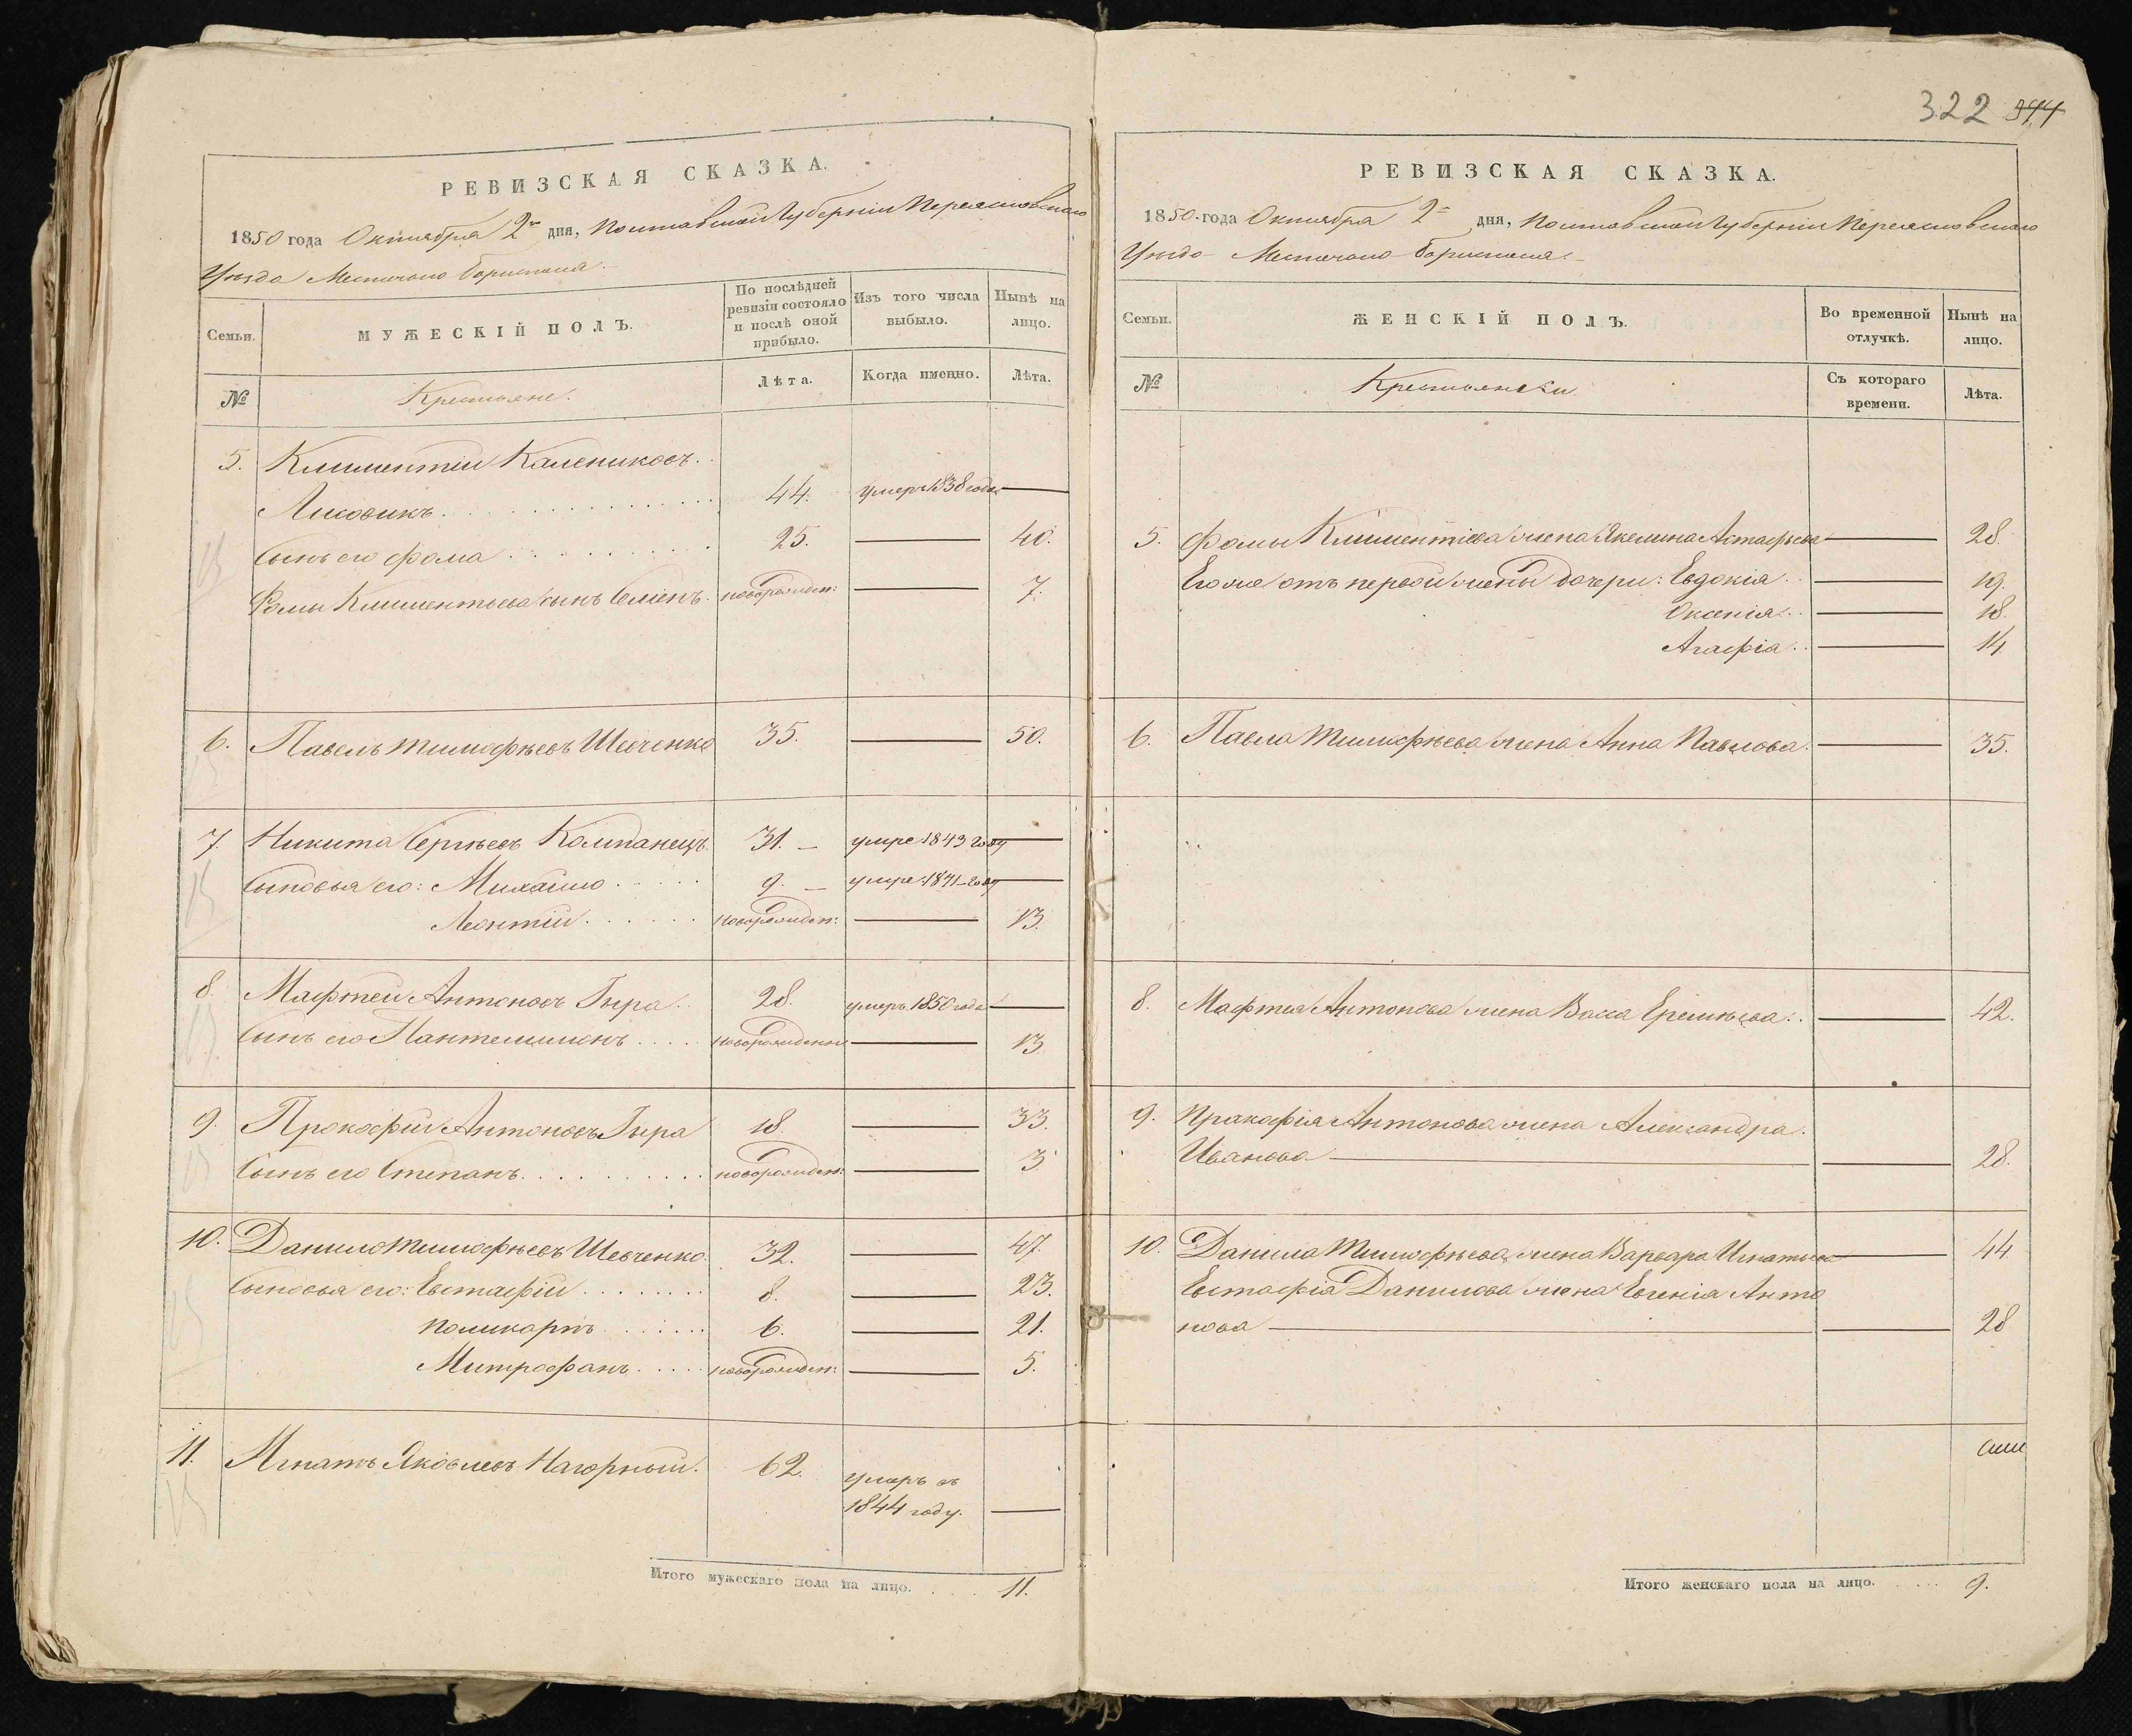 322 344
РЕВИЗСКАЯ СКАЗКА.
1850 года Октября 2го дня, Полтавской Губерніи Переяславскаго
Уезда Местечка Борисполя.
Семьи.
МУЖЕСКІЙ ПОЛЪ.
По послѣдней ревизіи состояло и послѣ оной прибыло.
Изъ того числа выбыло.
Нынѣ на лицо.
№
Крестьяне.
Лѣта.
Когда именно.
Лѣта.
5. Климентій Калениковъ
Лисовикъ 44. умеръ 1838 года
Сынъ его Фома 25. 40.
Фомы Климентьева сынъ Семенъ. новорожден: 7.
6. Павелъ Тимофѣевъ Шевченко 35. 50.
7. Никита Сергѣевъ Компанецъ. 31. умре 1843 году
Сыновья его: Михайло 9. умре 1841 году
Леонтій новорожден: 13.
8. Мафтей Антоновъ Гира. 28. умеръ 1850 года
Сынъ его Пантелимонъ новорожденъ 13
9. Прокофій Антоновъ Гира 18. 33.
Сынъ его Степанъ новорожден: 3
10. Данило Тимофѣевъ Шевченко. 32. 47.
Сыновья его: Евстафій 8. 23.
Поликарпъ 6. 21.
Митрофанъ новорожден: 5.
11. Игнатъ Яковлевъ Нагорный. 62. умеръ въ
1844 году.
Итого мужескаго пола на лицо. 11.
РЕВИЗСКАЯ СКАЗКА.
1850 года Октября 2го дня, Полтавской Губерніи Переяславскаго
Уезда Местечка Борисполя
Семьи.
ЖЕНСКІЙ ПОЛЪ.
Во временной отлучкѣ.
Нынѣ на лицо.
№
Крестьянски
Съ котораго времени.
Лѣта.
5. Фомы Климентіева жена Акелина Астафьева 28.
Его же отъ первой жены дочери: Евдокія 19.
Оксенія 18.
Агафіа 14
6. Павла Тимофѣева жена Анна Павлова. 35.
8. Мафтея Антонова жена Васса Еремѣева. 42.
9. Прокофія Антонова жена Александра
Иванова 28.
10. Данила Тимофѣева жена Варвара Игнатьева 44
Евстафіа Данилова жена Евгеніа Анто
нова 28
Итого женскаго пола на лицо. 9.